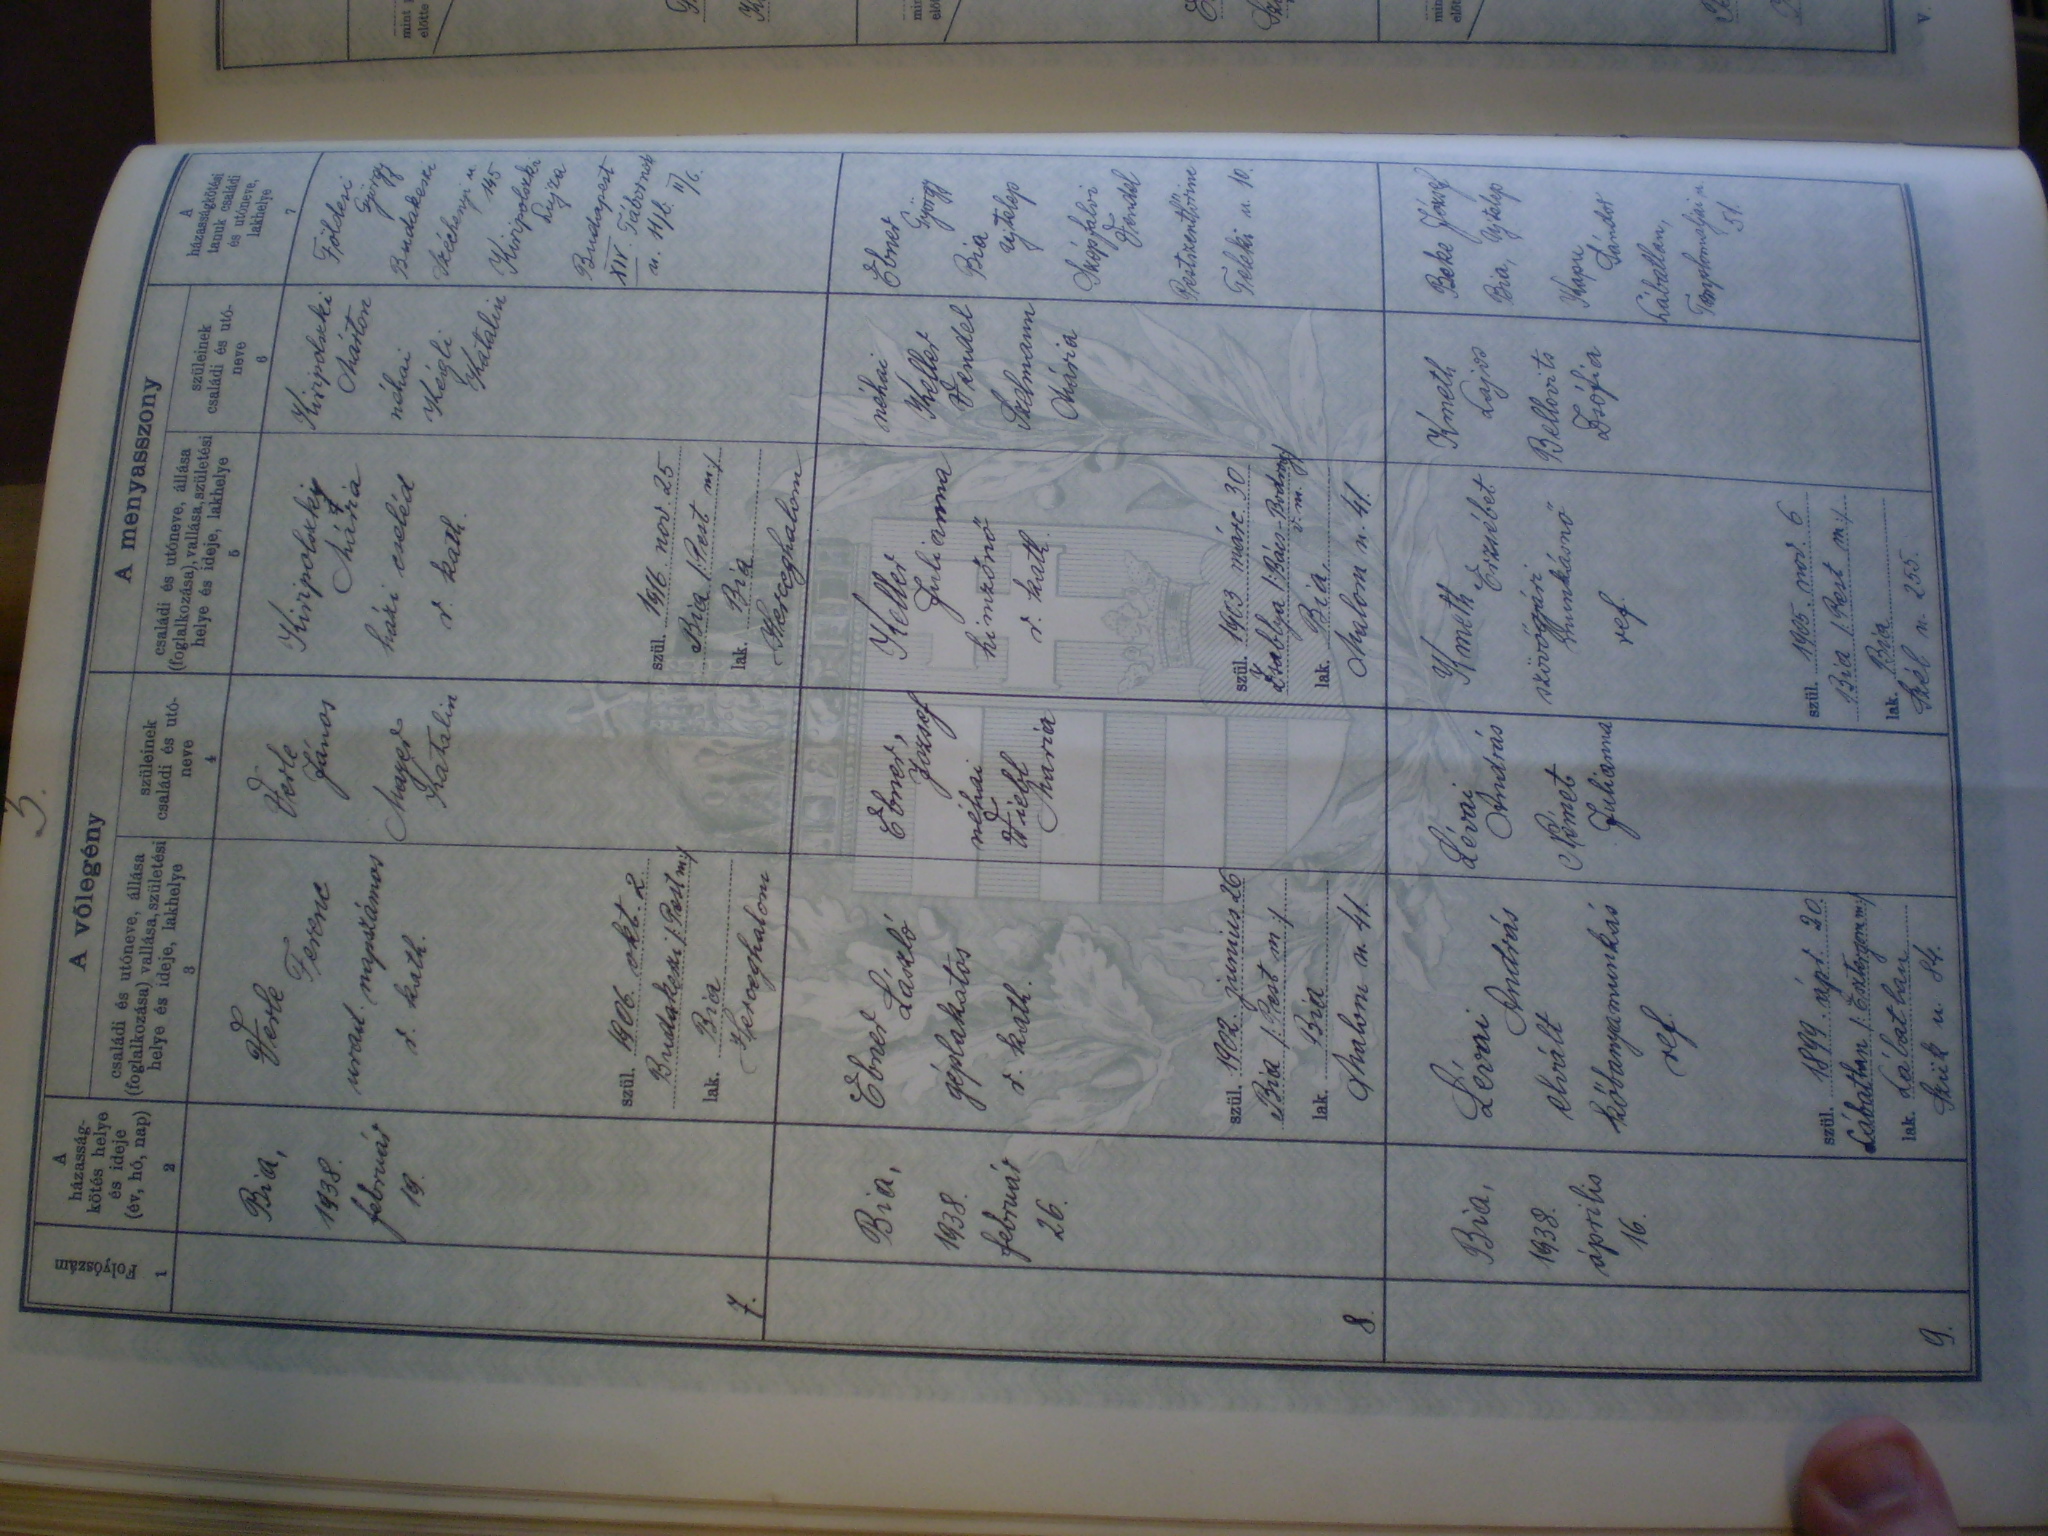 3.
A vőlegény
A menyasszony
Folyószám
A
házasság-
kötés helye
és ideje
(év, hó, nap)
családi és utóneve, állása
(foglalkozása) vallása, születési
helye és ideje, lakhelye
szüleinek
családi és utó-
neve
családi és utóneve, állása
(foglalkozása), vallása, születési
helye és ideje, lakhelye
szüleinek
családi és utó-
neve
A
házasságkötési
tanuk családi
és utóneve,
lakhelye
1
2
3
4
5
6
7
7.
Bia,
1938.
február
19.
Verle
Ferenc
urad. napszámos
r. kath.
szül. 1906. okt. 2
Budakeszi /: Pest m :/
lak. Bia
Herceghalom
Verle
János
Mayer
Katalin
Kiripolszky
Mária
házi cseléd
r. kath.
szül. 1916 nov. 25
Bia /: Pest m :/
lak. Bia
Herceghalom
Kiripolszki
Márton
néhai
Keigli
Katalin
Földesi
György
Budakeszi
Széchenyi u
145
Kiripolszki
Lujza
Budapest
XIV Tábornok
u. 11/b. II/6.
8.
Bia,
1938.
február
26.
Ebner László
géplakatos
r. kath.
szül. 1902 junius 26
Bia /: Pest m :/
lak. Bia
Malom u. 41.
Ebner,
József
néhai
Wiehl
Mária
Keller
Julianna
himzőnő
r. kath.
szül. 1903 márc 30
Zsablya /: Bács-Bodrog
v. m. :/
lak. Bia,
Malom u. 41.
néhai
Keller
Vendel
Szelmann
Mária
Ebner
György
Bia
ujtelep
Skopfalvi
Vendel
Pestszentlőrinc
Teleki u. 10.
9.
Bia,
1938.
április
16.
Lévai
András
elvált
kőbányamunkás
ref.
szül. 1899. szept. 20.
Lábatlan /: Esztergom m :/
lak. Lábatlan
Szük u. 84.
Lévai
András
Német
Julianna
Kmeth
Erzsébet
szövőgyári
munkásnő
ref.
szül. 1905. nov. 6
Bia /: Pest m :/
lak. Bia
Szél u. 255.
Kmeth
Lajos
Bellovits
Zsófia
Beke József
Bia, Ujtelep
Kapu
Sándor
Lábatlan,
Templomalja u.
51.